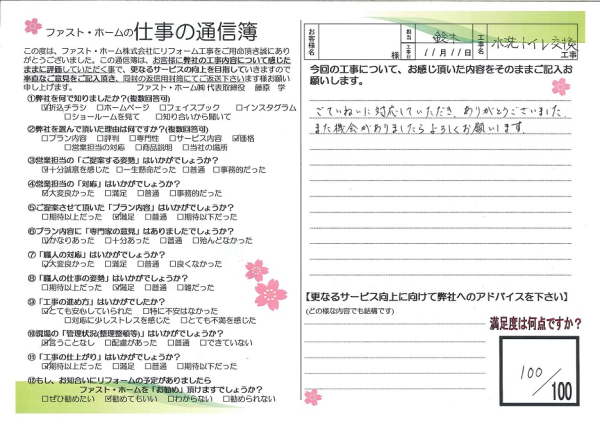 ファスト・ホームの仕事の通信簿
この度は、ファスト・ホーム株式会社にリフォーム工事をご用命頂き誠にあり
がとうございました。この通信簿は、お客様に弊社の工事内容について感じた
ままに評価していただく事で、更なるサービスの向上を目指していきますので
率直なご意見をご記入頂き、同封の返信用封筒にてご返送下さいます様お願い
申し上げます。 ファスト・ホーム㈱ 代表取締役 藤原 学
①弊社を何で知りましたか?(複数回答可)
☑折込チラシ □ホームページ □フェイスブック □インスタグラム
□ショールームを見て □知り合いから聞いて
②弊社を選んで頂いた理由は何ですか?(複数回答可)
□プラン内容 □評判 □専門性 □サービス内容 ☑価格
□営業担当の対応 □商品説明 □当社の場所
③営業担当の「ご提案する姿勢」はいかがでしょうか?
☑十分誠意を感じた □一生懸命だった □普通 □事務的だった
④営業担当の「対応」はいかがでしょうか?
☑大変良かった □満足 □普通 □事務的だった
⑤ご提案させて頂いた「プラン内容」はいかがでしょうか?
□期待以上だった ☑満足 □普通 □期待以下だった
⑥プラン内容に「専門家の意見」はありましたでしょうか?
☑かなりあった □十分あった □普通 □殆んどなかった
⑦「職人の対応」はいかがでしょうか?
☑大変良かった □満足 □普通 □良くなかった
⑧「職人の仕事の姿勢」はいかがでしょうか?
□期待以上だった ☑満足 □普通 □雑だった
⑨「工事の進め方」はいかがでしたか?
☑とても安心していられた □特に不安はなかった
□対応に少しストレスを感じた □とても不満を感じた
⑩現場の「管理状況(整理整頓等)」はいかがでしたか?
☑言うことなし □配慮があった □普通 □できていない
⑪「工事の仕上がり」はいかがでしょうか?
☑期待以上だった □満足 □普通 □期待以下だった
⑫もし、お知合いにリフォームの予定がありましたら
ファスト・ホームを「お勧め」頂けますでしょうか?
□ぜひ勧めたい ☑勧めてもいい □わからない □勧められない
お客様名 様 担当 鈴木 工事日 11月11日 工事名 水洗トイレ交換 工事
今回の工事について、お感じ頂いた内容をそのままご記入お
願いします。
ごていねいに対応していただき、ありがとうございました。
また機会がありましたらよろしくお願いします。
【更なるサービス向上に向けて弊社へのアドバイスを下さい】
(どの様な内容でも結構です)
満足度は何点ですか?
100/100